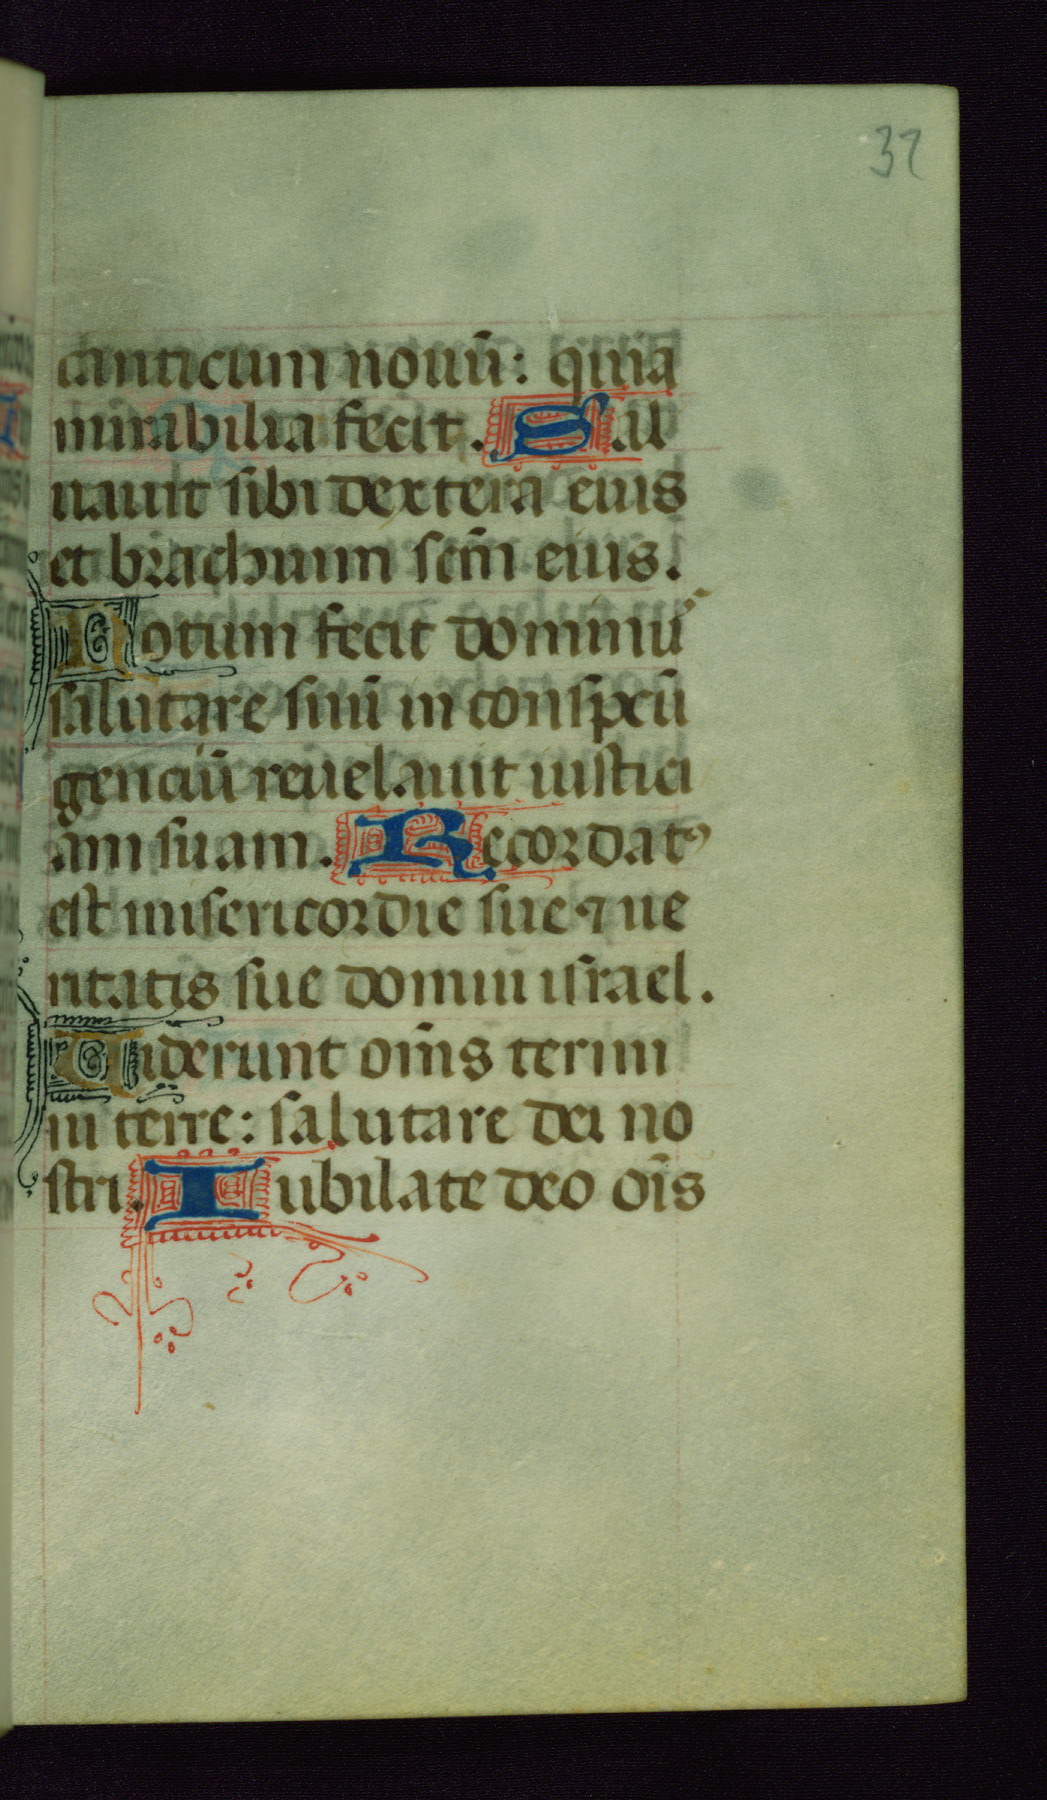 37
canticum nouū: quia
mirabilia fecit. Sal
uauit sibi dextera eius
et brachium scm̄ eius.
Notum fecit dominus
salutare suū in conspcū
genciū reuelauit iustici
am suam. Recordatꝰ
est misericordie sue ⁊ ue
ritatis sue domui israel.
Viderunt om̄s termi
ni terre: salutare dei no
stri. Iubilate deo oīs